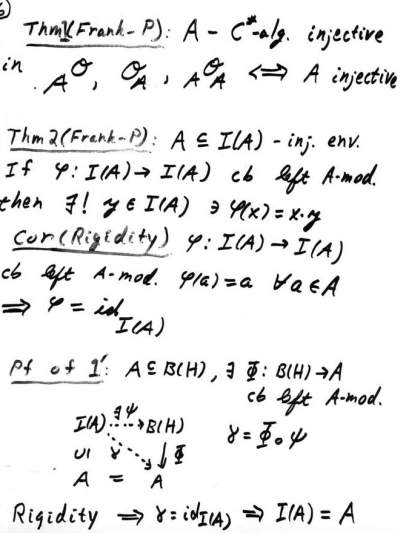 6)
Thm 1 (Frank-P): A - C*-alg. injective
in _Aᴏ, ᴏ_A, _Aᴏ_A ⟺ A injective
Thm 2 (Frank-P): A ⊆ I(A) - inj. env.
If φ: I(A) → I(A) cb left A-mod.
then ∃! y ∈ I(A) ∋ φ(x) = x·y
Cor (Rigidity) φ: I(A) → I(A)
cb left A-mod. φ(a) = a ∀a ∈ A
⟹ φ = id_I(A)
Pf of 1': A ⊆ B(H), ∃ Φ: B(H) → A
cb left A-mod.
I(A) ∃ψ B(H)
UI γ ↓ Φ γ = Φ∘ψ
A = A
Rigidity ⟹ γ = id_I(A) ⟹ I(A) = A